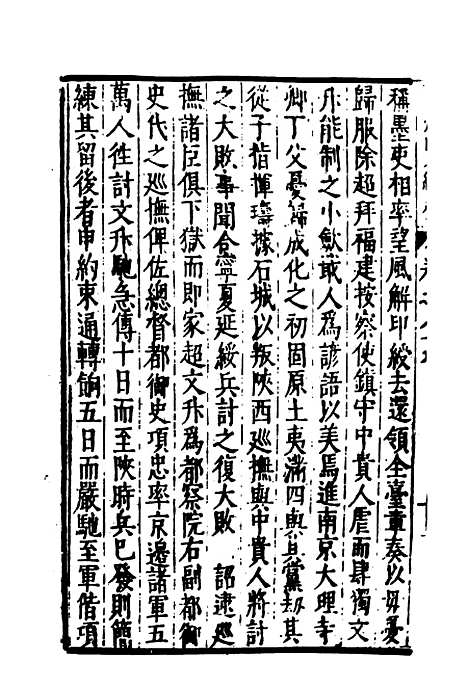 稱墨吏相率望風解印綬去還領全臺章奏以母憂
歸服除超拜福建按察使鎮守中貴人虐而肆獨文
升能制之小歉或人為諺語以美焉進南京大理寺
卿丁父憂歸成化之初固原土夷滿四與其黨劫其
從子指揮璹據石城以叛陝西巡撫與中貴人將討
之大敗事聞合寧夏延綏兵討之復大敗 詔逮巡
撫諸臣俱下獄而即家超文升為都察院右副都御
史代之巡撫俾佐總督都御史項忠率京邊諸軍五
萬人徃討文升馳急傳十日而至陝時兵已發則簡
練其留後者申約束通轉餉五日而嚴馳至軍偕項